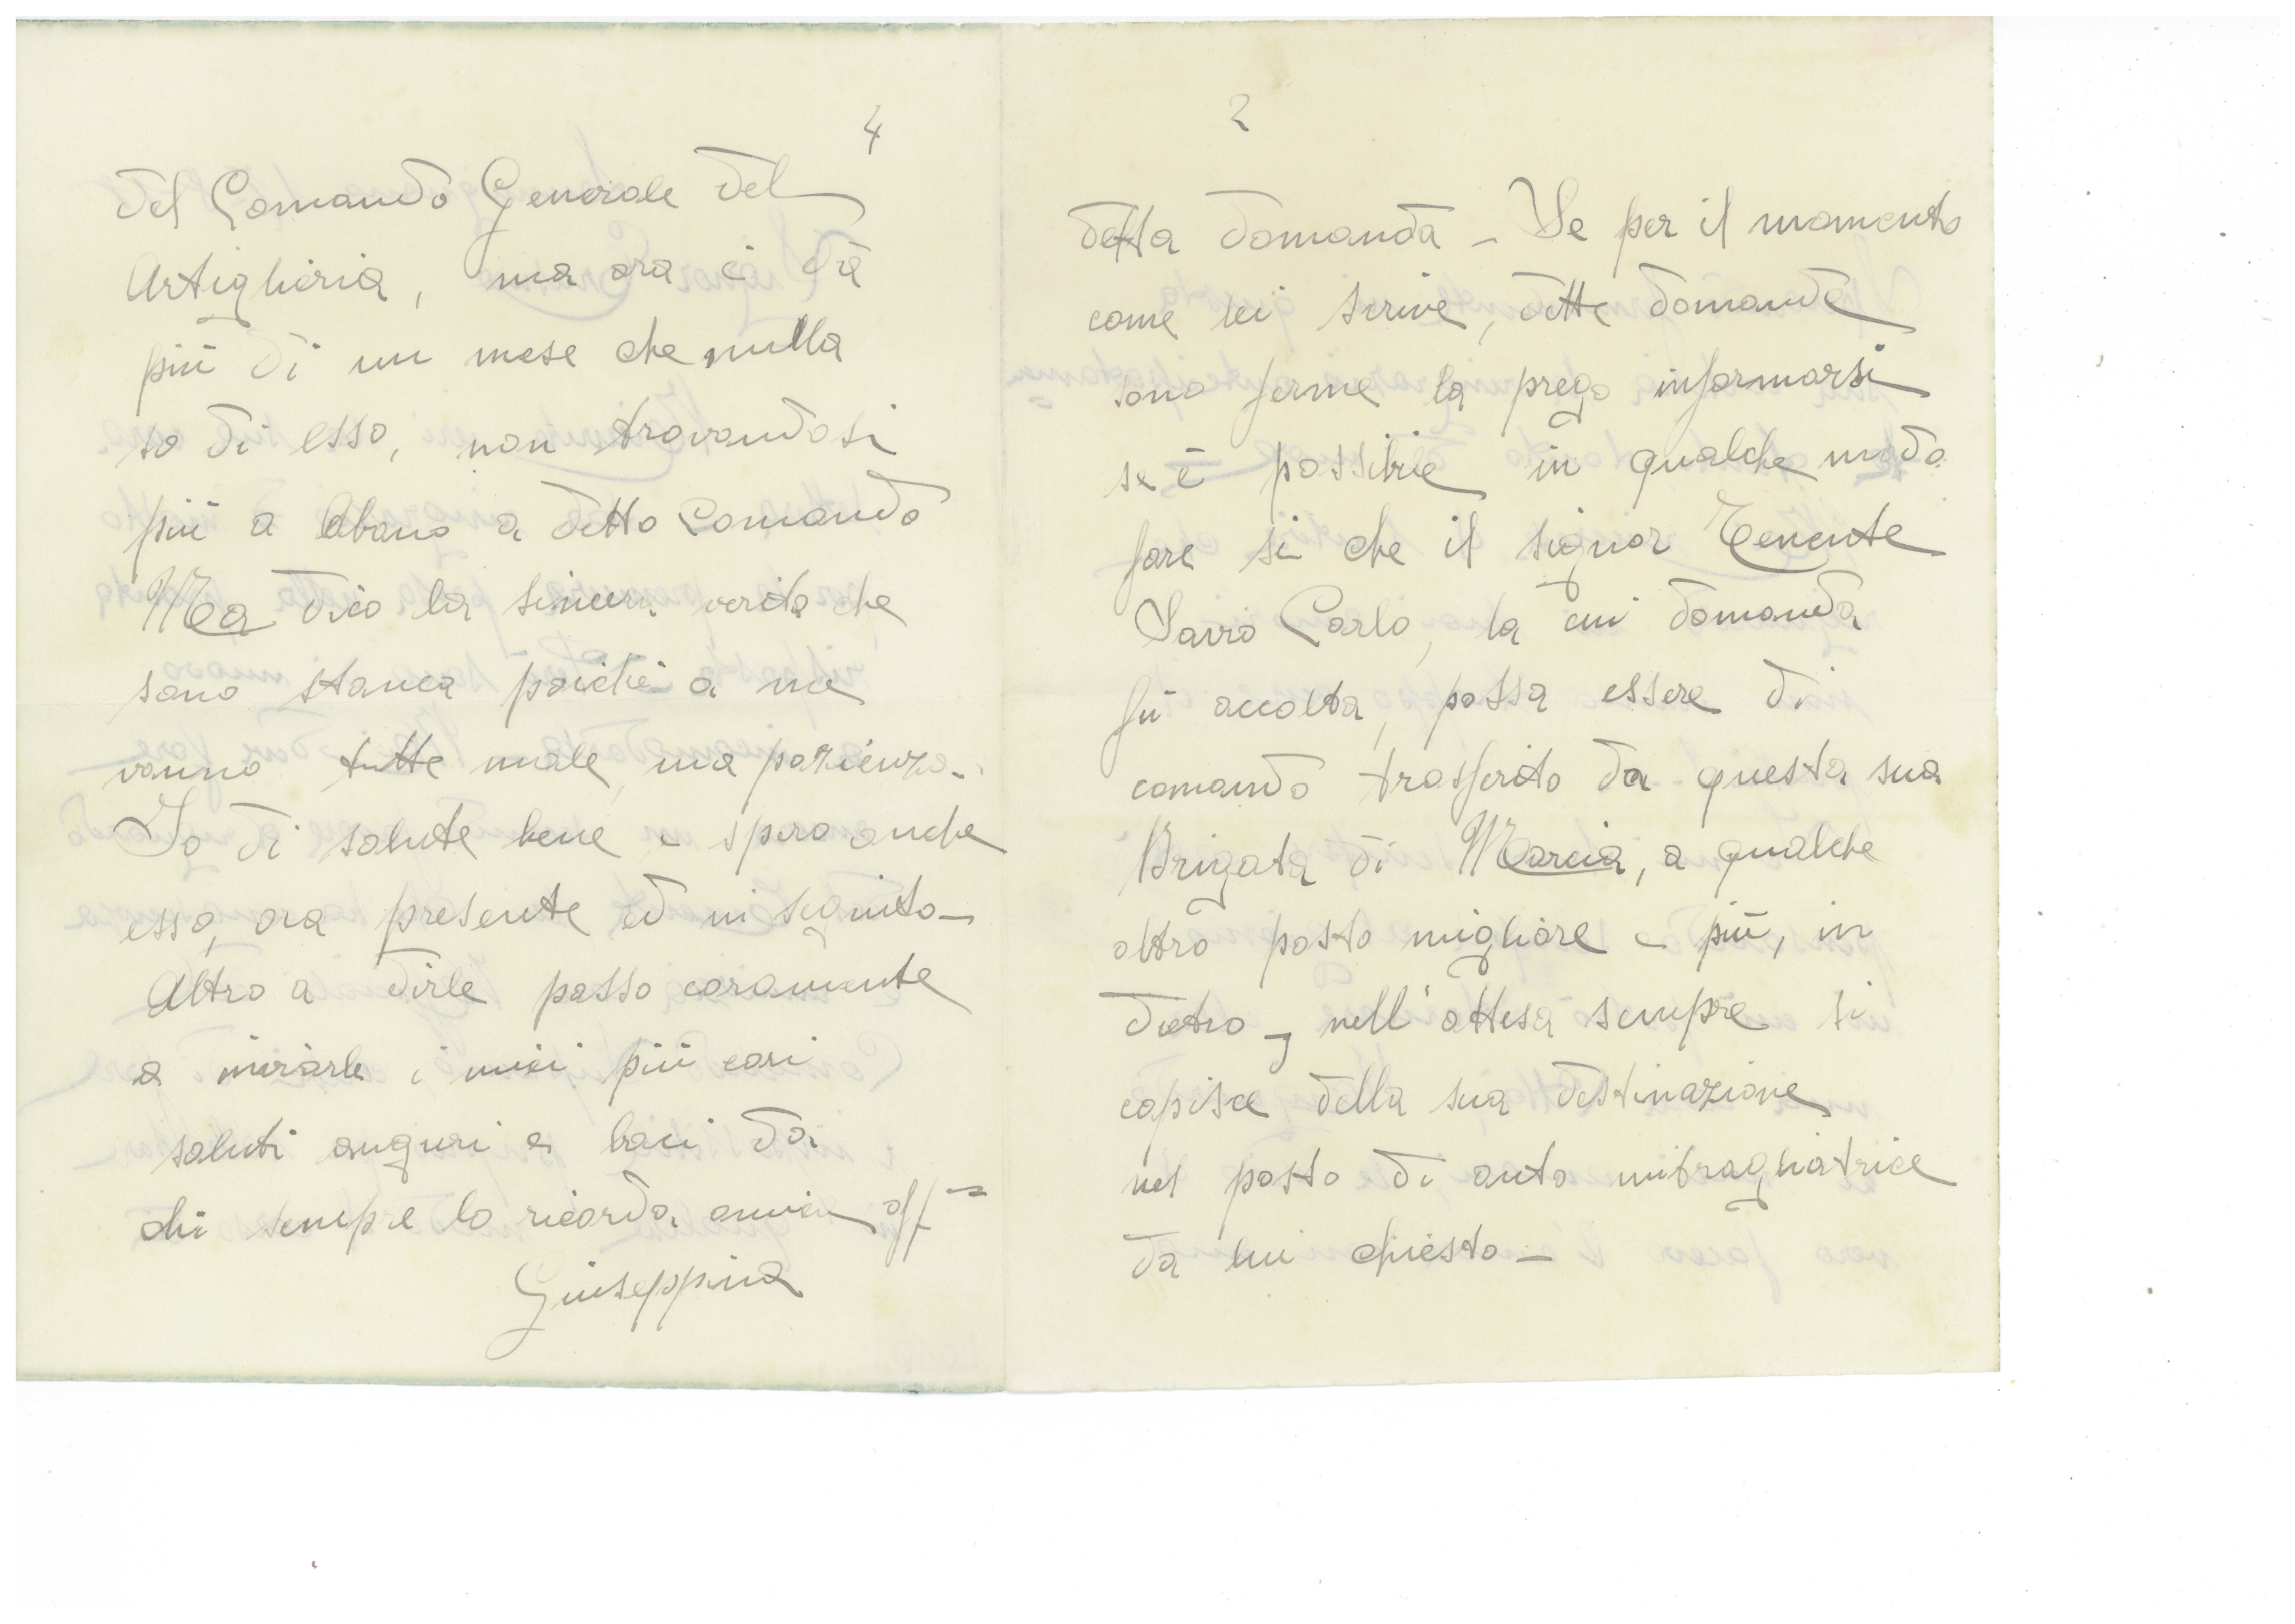 4
del Comando Generale del
Artiglieria, ma ora è dà
più di un mese che nulla
so di esso, non trovandosi
più a Abano a detto Comando
Ma dico la sincera verità che
sono stanca poichè a me
vanno tutte male, ma pazienza.
Io di salute bene e spero anche
esso, ora presente ed in seguito –
Altro a dirle passo caramente
a inviarle i miei più cari
saluti auguri e baci da
chi sempre lo ricorda amica aff
Giuseppina
2
detta domanda – Se per il momento
come lei scrive, dette domande
sono ferme la prego informarsi
se è possibile in qualche modo
fare si che il signor Tenente
Savio Carlo, la cui domanda
fù accolta, possa essere di
comando trasferito da questa sua
Brigata di Marcia, a qualche
altro posto migliore e più, in
dietro, nell'attesa sempre si
capisce della sua destinazione
nel posto di auto mitragliatrice
da lui chiesto –